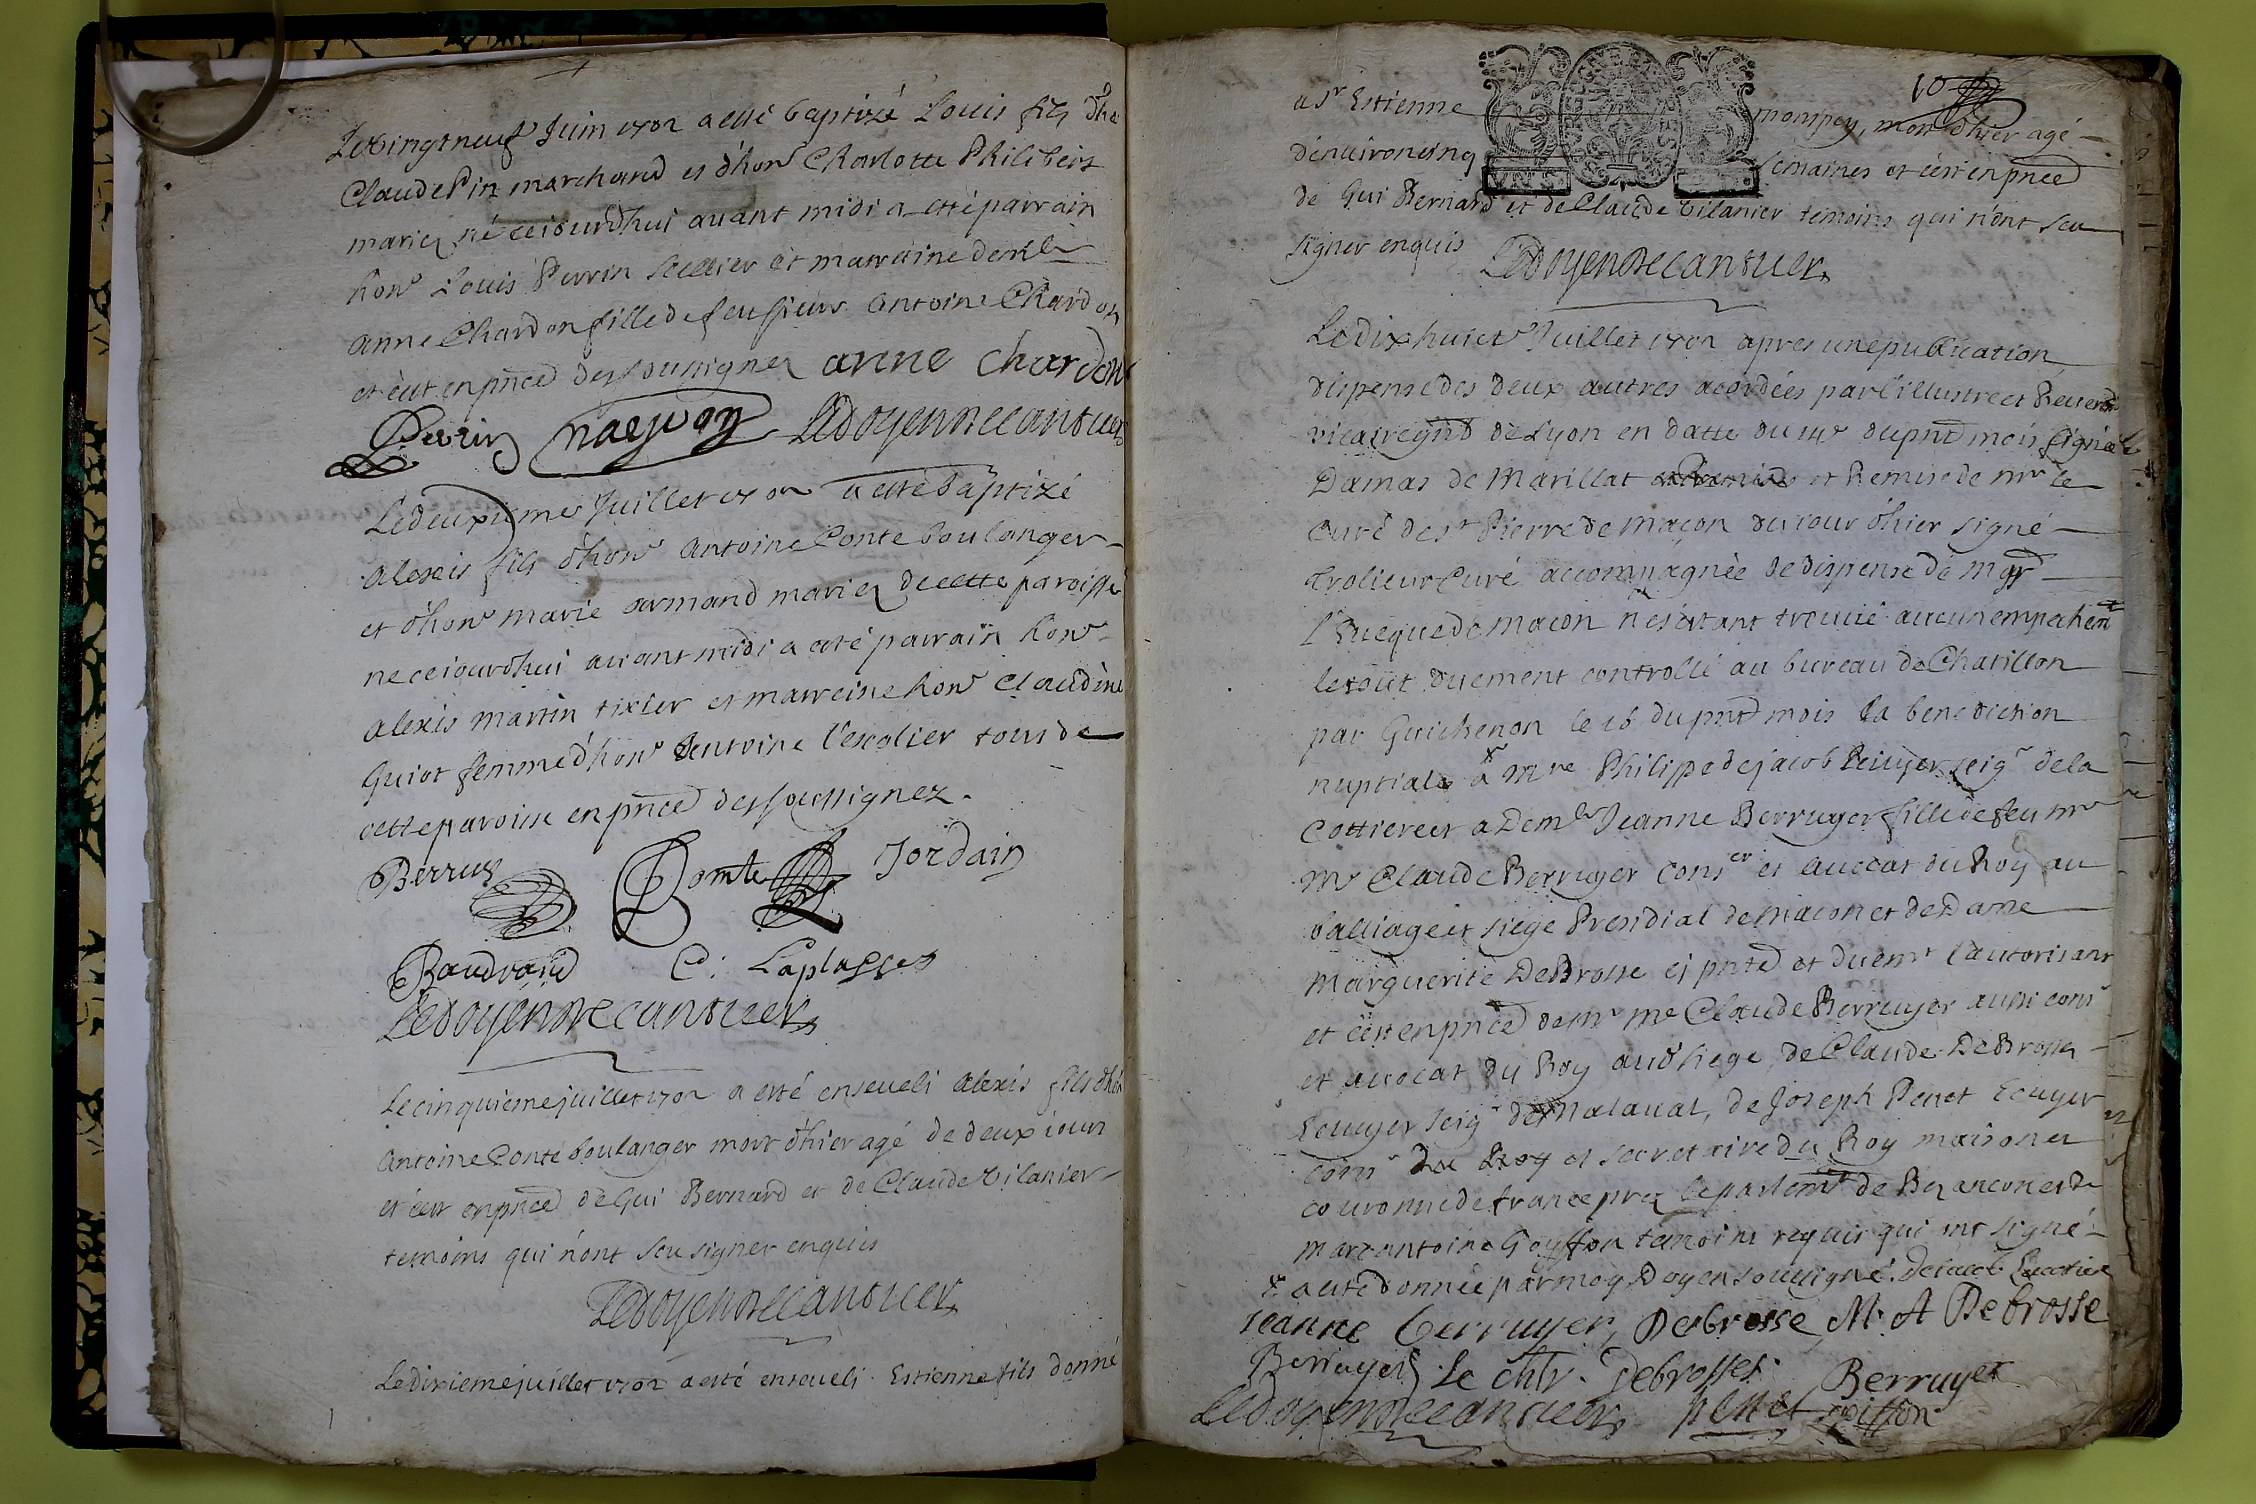 Le vingt neuf Juin 1702 a esté baptizé Louis fils d'ho
Claude Pin marchand et d'hon Charlotte Philibert
mariez né ceiourdhui avant midi a etté parrain
hon Louis Perrin Scellier et marraine demlle
anne Chardon fille de feu sieur Antoine Chardon
et c'est en pnce des soussignez anne chardon
Perrin Ledoyen Decantuer
Le deuxieme Juillet 1702 a esté baptizé
Alexis fils d'hon Antoine Conte boulanger
et d'hon marie armand mariez de cette paroisse
ne ceiourdhui avant midi a eté parrain hon
alexis martin tixier et marreine hon Claudine
Guiot femme d'hon Antoine l'escolier tous de
cette paroisse en pnce des soussignez.
Berruy Comte Jordain
Baudrand C. Laplasse
Ledoyen Decantuer
Le cinquieme juillet 1702 a esté enseveli alexis fils d'hon
Antoine Conte boulanger mort d'hier agé de deux iours
et c'est en pnce de Gui Bernard et de Claude Vilanier
temoins qui n'ont seu signer enquis
Ledoyen Decantuer
Le dixieme juillet 1702 a esté enseveli Estienne fils donné
10
a Sr Estienne mompey, mort d'hier agé
d'environ cinq semaines et c'est en pnce
de Gui Bernard et de Claude Vilanier temoins qui n'ont seu
signer enquis Ledoyen Decantuer
Le dixhuict Juillet 1702 apres une publication
dispense des deux autres acordées par l'illustre et Reverend
vicaire gnd de Lyon en datte du 14e du pnt mois signée
Damas de Marillat et Remise de mr le
Curé de st Pierre de Macon du iour d'hier signé
Trolieur Curé accompagnée de dispense de mgr
l'Eveque de Macon n'es'etant trouvé aucun empechemt
le tout duement controllé au bureau de Chatillon
par Guichenon le 16 du pnt mois la benediction
nuptiale a mre Philippe de jacob Ecuyer seigr de la
Cottiere et a Demlle Jeanne Berruyer fille de feu mr
Me Claude Berruyer conser et avocat du Roy au
balliage et siege Presidial de Macon et de Dame
Marguerite DeBrosse ej pnte et duemt l'autorisant
et c'est en pnce de mr me Claude Berruyer aussi cons
et avocat du Roy aud siege, de Claude DeBrosse
Ecuyer seigr de Malaval, de Joseph Penet Ecuyer
cons du Roy et secretaire du Roy maison et
couronne de france prez le parlemt de Bezancon et de
marc antoine Goyffon temoins requis qui ont signé
x a eté donnée par moy Doyen soussigné. Dejacob Lacottiere
Jeanne berruyer, Debrosse M. A Debrosse
Berruyer Le chlr. Debrosses Berruyer
Ledoyen Decantuer penet Goiffon